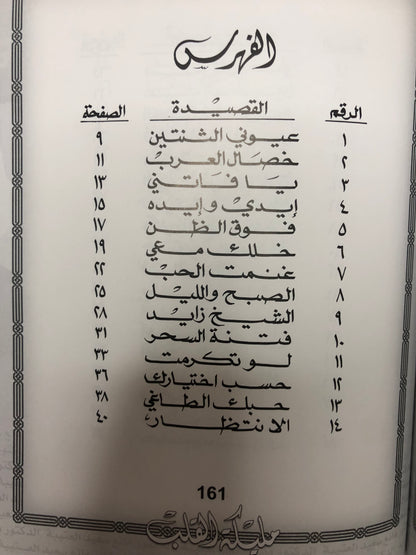 الفهرس
الرقم القصيدة الصفحة
١ عيوني الثنتين ٩
٢ خصال العرب ١١
٣ يا فاتني ١٣
٤ إيدي وإيده ١٥
٥ فوق الظن ١٧
٦ خلك معي ١٩
٧ غنمت الحب ٢٢
٨ الصبح والليل ٢٥
٩ الشيخ زايد ٢٨
١٠ فتنة السحر ٣١
١١ لو تكرمت ٣٣
١٢ حسب اختيارك ٣٦
١٣ حبك الطاغي ٣٨
١٤ الانتظار ٤٠
161
مليكة القلب